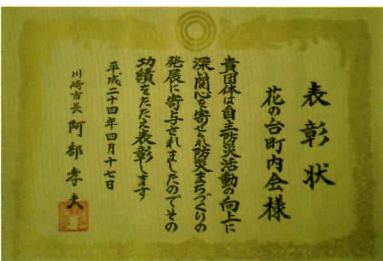 表彰状
花の台町内会様
貴団体は自主防災活動の向上に
深い関心を寄せられ防災まちづくりの
発展に寄与されましたのでその
功績をたたえ表彰します
平成二十四年四月十七日
川崎市長 阿部孝夫